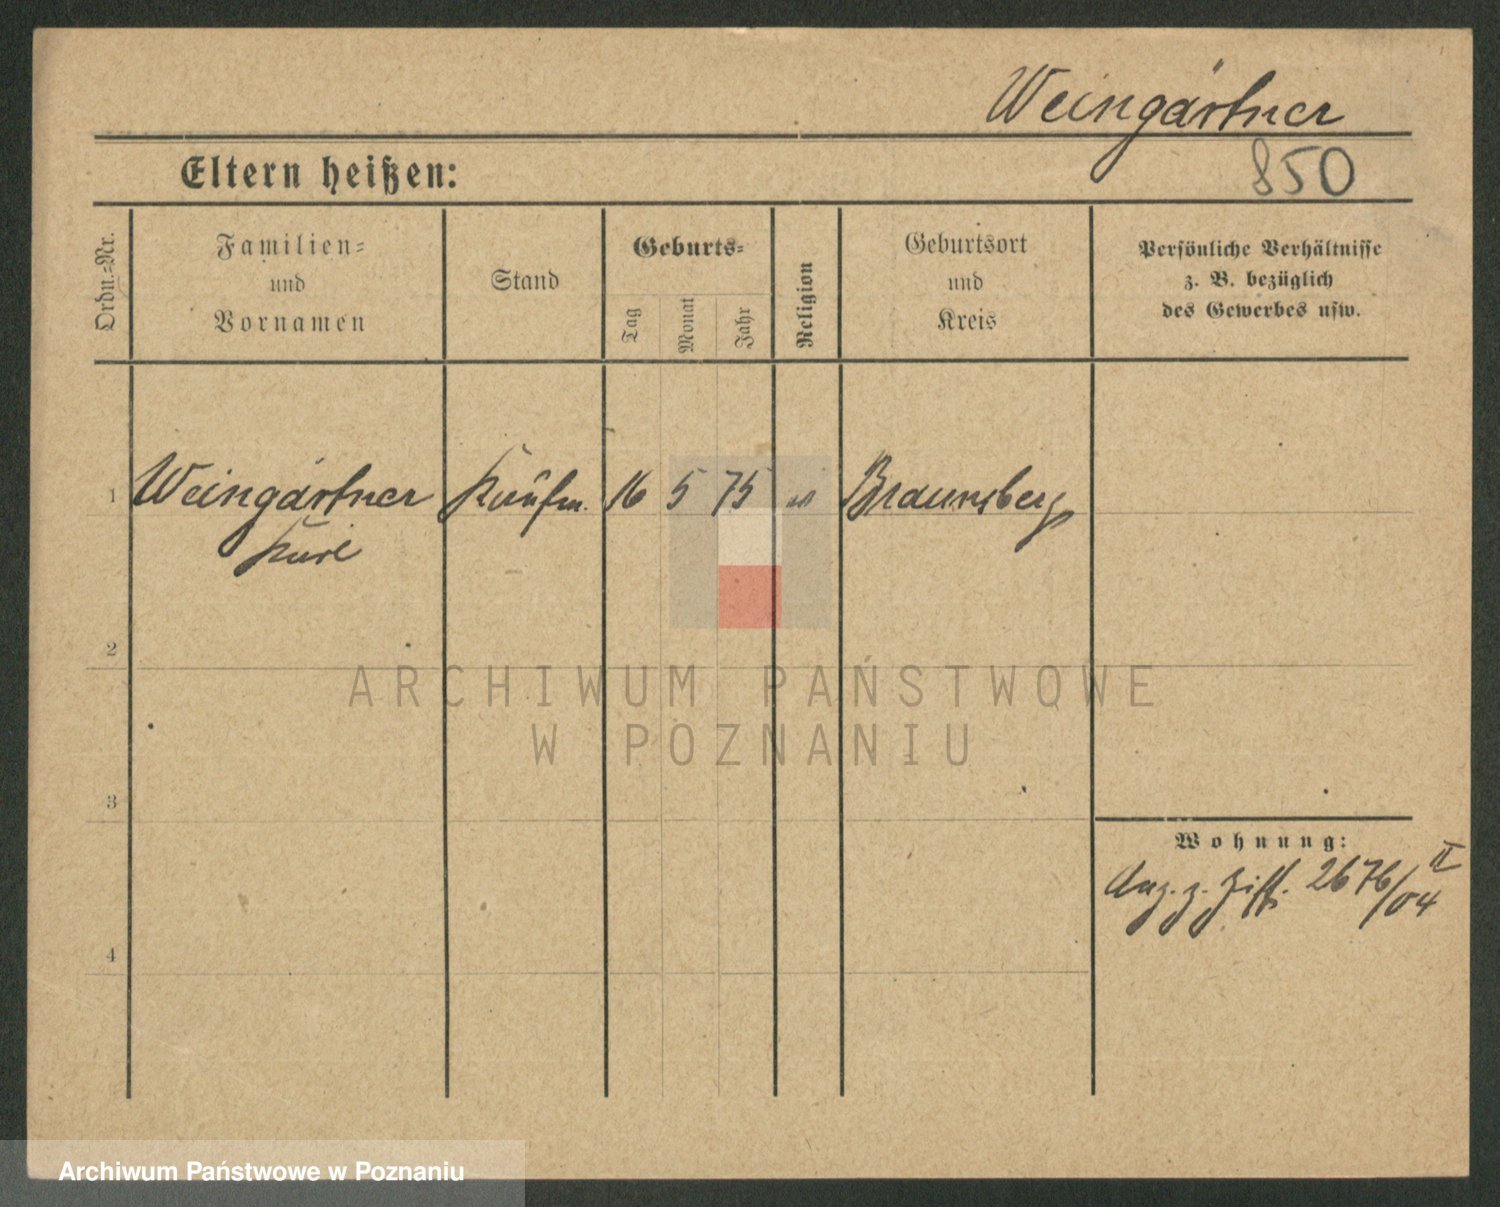 Weingärtner
850
Eltern heißen:
Ordn.-Nr.
Familien-
und
Vornamen
Stand
Geburts-
Tag
Monat
Jahr
Religion
Geburtsort
und
Kreis
Persönliche Verhältnisse
z. B. bezüglich
des Gewerbes usw.
1 Weingärtner Kaufm. 16 5 75 Braunsberg
Karl
2
3
4
Wohnung:
2676/04 II
ARCHIWUM PAŃSTWOWE
W POZNANIU
Archiwum Państwowe w Poznaniu